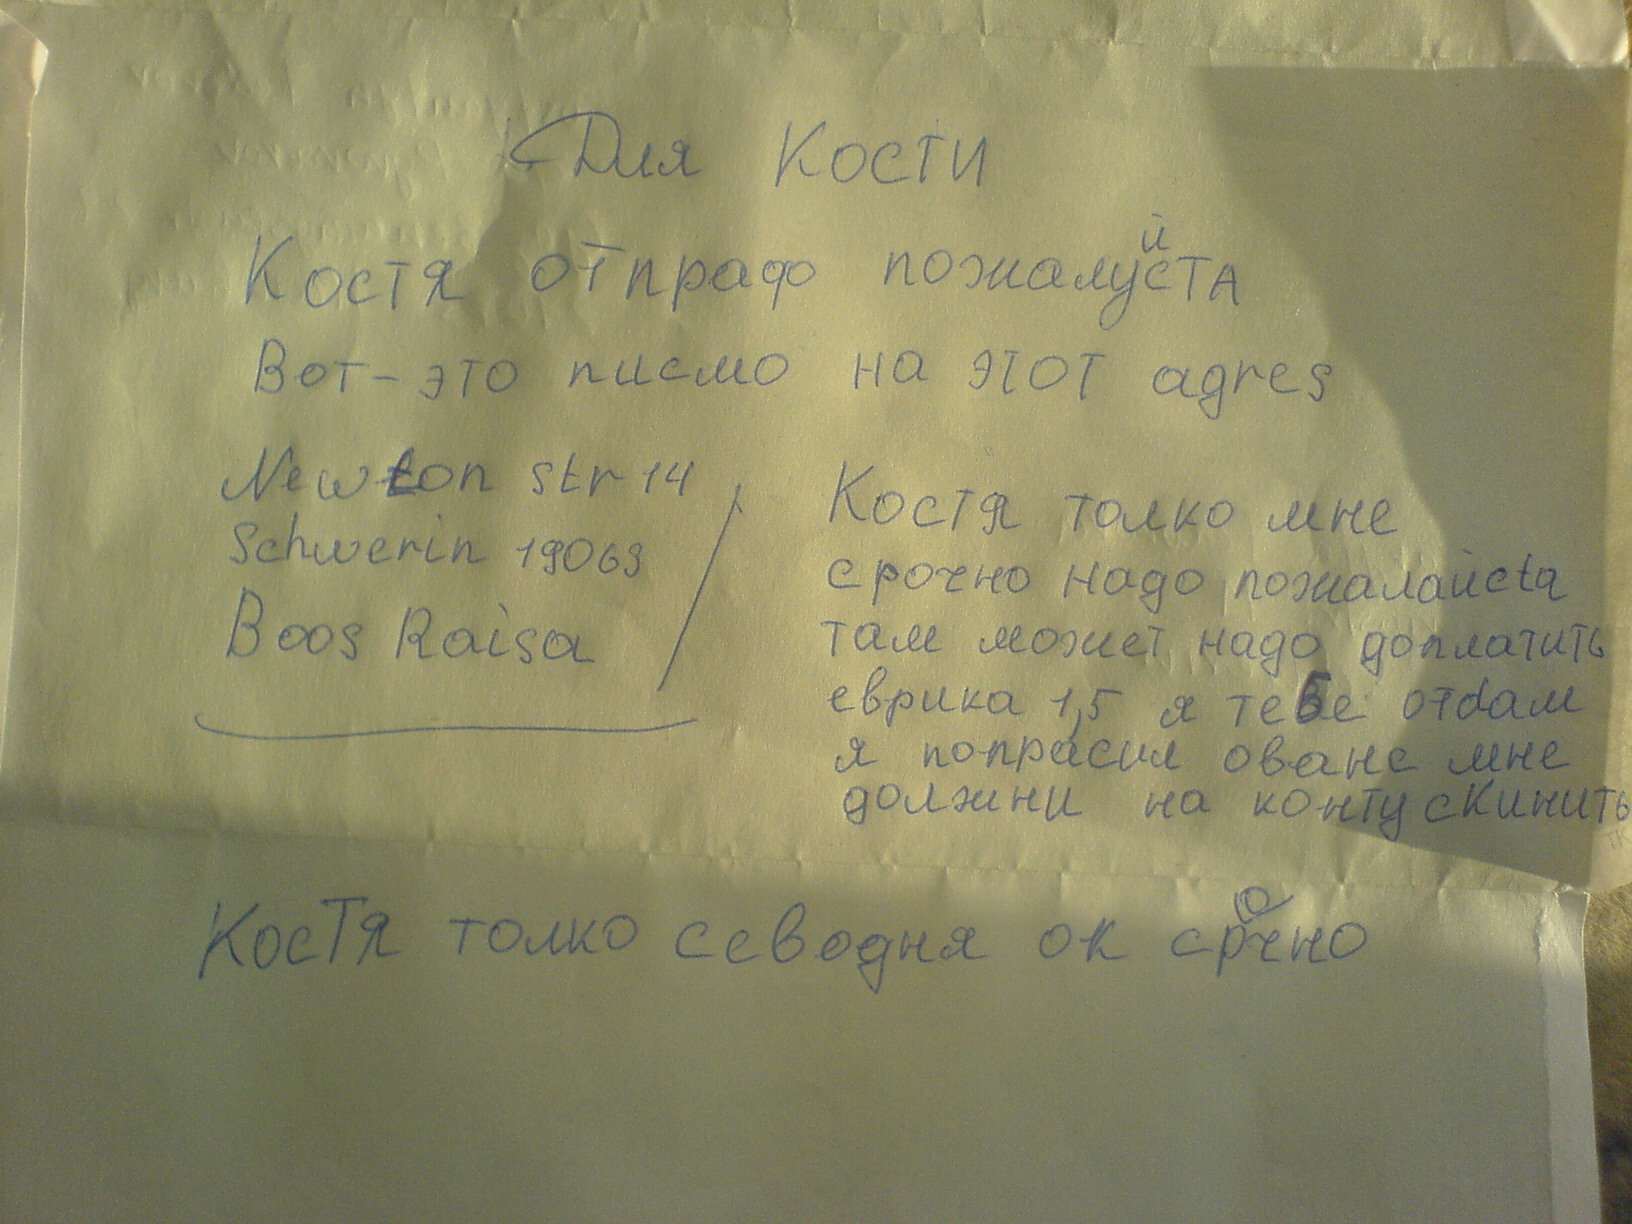 Для Кости
Костя отпраф пожалуйста
Вот-это писмо на этот agres
Newton str 14
Schwerin 19063
Boos Raisa
Костя толко мне
срочно надо пожалайсta
там может надо доплатить
еврика 1,5 я тебе отdам
я попрасил ованс мне
должни на конту скинить
Костя толко севодня ок срочно